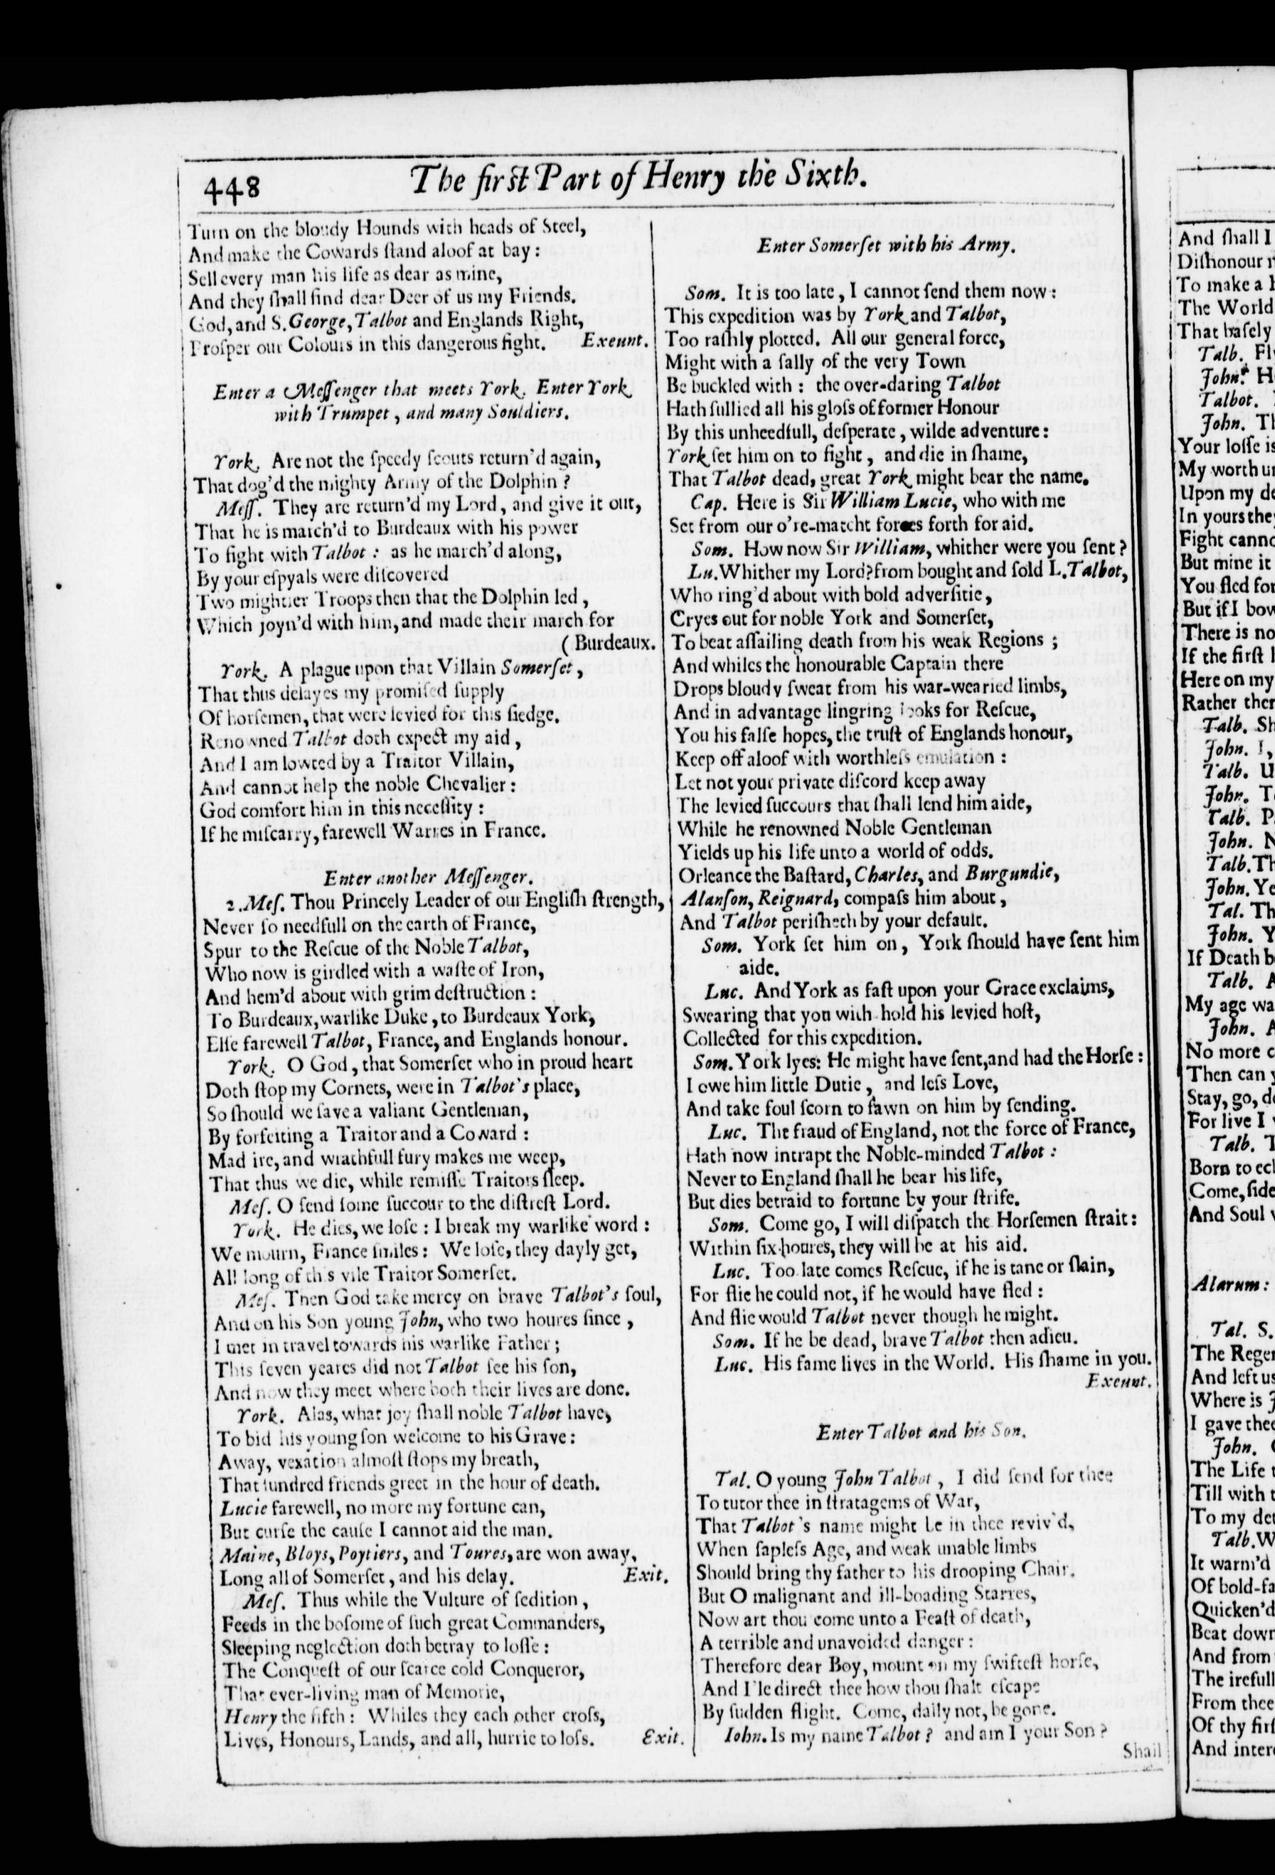 448
The first Part of Henry the Sixth.
Turn on the bloudy Hounds with heads of Steel,
And make the Cowards ſtand aloof at bay:
Sell every man his life as dear as mine,
And they ſhall find dear Deer of us my Friends.
God, and S. George, Talbot and Englands Right,
Proſper our Colours in this dangerous fight. Exeunt.
Enter a Meſſenger that meets York. Enter York
with Trumpet, and many Souldiers.
York. Are not the ſpeedy ſcouts return'd again,
That dog'd the mighty Army of the Dolphin?
Meſſ. They are return'd my Lord, and give it out,
That he is march'd to Burdeaux with his power
To fight with Talbot: as he march'd along,
By your eſpyals were diſcovered
Two mightier Troops then that the Dolphin led,
Which joyn'd with him, and made their march for
(Burdeaux.
York. A plague upon that Villain Somerſet,
That thus delayes my promiſed ſupply
Of horſemen, that were levied for this ſiedge.
Renowned Talbot doth expect my aid,
And I am lowted by a Traitor Villain,
And cannot help the noble Chevalier:
God comfort him in this neceſſity:
If he miſcarry, farewell Warres in France.
Enter another Meſſenger.
2. Meſ. Thou Princely Leader of our Engliſh ſtrength,
Never ſo needfull on the earth of France,
Spur to the Reſcue of the Noble Talbot,
Who now is girdled with a waſte of Iron,
And hem'd about with grim deſtruction:
To Burdeaux, warlike Duke, to Burdeaux York,
Elſe farewell Talbot, France, and Englands honour.
York. O God, that Somerſet who in proud heart
Doth ſtop my Cornets, were in Talbot's place,
So ſhould we ſave a valiant Gentleman,
By forfeiting a Traitor and a Coward:
Mad ire, and wrathfull fury makes me weep,
That thus we die, while remiſſe Traitors ſleep.
Meſ. O ſend ſome ſuccour to the diſtreſt Lord.
York. He dies, we loſe: I break my warlike word:
We mourn, France ſmiles: We loſe, they dayly get,
All long of this vile Traitor Somerſet.
Meſ. Then God take mercy on brave Talbot's ſoul,
And on his Son young John, who two houres ſince,
I met in travel towards his warlike Father;
This ſeven yeares did not Talbot ſee his ſon,
And now they meet where both their lives are done.
York. Alas, what joy ſhall noble Talbot have,
To bid his young ſon welcome to his Grave:
Away, vexation almoſt ſtops my breath,
That ſundred friends greet in the hour of death.
Lucie farewell, no more my fortune can,
But curſe the cauſe I cannot aid the man.
Maine, Bloys, Poytiers, and Toures, are won away,
Long all of Somerſet, and his delay. Exit.
Meſ. Thus while the Vulture of ſedition,
Feeds in the boſome of ſuch great Commanders,
Sleeping neglection doth betray to loſſe:
The Conqueſt of our ſcarce cold Conqueror,
That ever-living man of Memorie,
Henry the fifth: Whiles they each other croſs,
Lives, Honours, Lands, and all, hurrie to loſs. Exit.
Enter Somerſet with his Army.
Som. It is too late, I cannot ſend them now:
This expedition was by York and Talbot,
Too raſhly plotted. All our general force,
Might with a ſally of the very Town
Be buckled with: the over-daring Talbot
Hath ſullied all his gloſs of former Honour
By this unheedfull, deſperate, wilde adventure:
York ſet him on to fight, and die in ſhame,
That Talbot dead, great York might bear the name.
Cap. Here is Sir William Lucie, who with me
Set from our o're-matcht forces forth for aid.
Som. How now Sir William, whither were you ſent?
Lu. Whither my Lord? from bought and ſold L. Talbot,
Who ring'd about with bold adverſitie,
Cryes out for noble York and Somerſet,
To beat aſſailing death from his weak Regions;
And whiles the honourable Captain there
Drops bloudy ſweat from his war-wearied limbs,
And in advantage lingring looks for Reſcue,
You his falſe hopes, the truſt of Englands honour,
Keep off aloof with worthleſs emulation:
Let not your private diſcord keep away
The levied ſuccours that ſhall lend him aide,
While he renowned Noble Gentleman
Yields up his life unto a world of odds.
Orleance the Baſtard, Charles, and Burgundie,
Alanſon, Reignard, compaſs him about,
And Talbot periſheth by your default.
Som. York ſet him on, York ſhould have ſent him
aide.
Luc. And York as faſt upon your Grace exclaims,
Swearing that you with-hold his levied hoſt,
Collected for this expedition.
Som. York lyes: He might have ſent, and had the Horſe:
I owe him little Dutie, and leſs Love,
And take foul ſcorn to fawn on him by ſending.
Luc. The fraud of England, not the force of France,
Hath now intrapt the Noble-minded Talbot:
Never to England ſhall he bear his life,
But dies betraid to fortune by your ſtrife.
Som. Come go, I will diſpatch the Horſemen ſtrait:
Within ſix houres, they will be at his aid.
Luc. Too late comes Reſcue, if he is tane or ſlain,
For flie he could not, if he would have fled:
And flie would Talbot never though he might.
Som. If he be dead, brave Talbot then adieu.
Luc. His fame lives in the World. His ſhame in you.
Exeunt.
Enter Talbot and his Son.
Tal. O young John Talbot, I did ſend for thee
To tutor thee in ſtratagems of War,
That Talbot's name might be in thee reviv'd,
When ſapleſs Age, and weak unable limbs
Should bring thy father to his drooping Chair.
But O malignant and ill-boading Starres,
Now art thou come unto a Feaſt of death,
A terrible and unavoided danger:
Therefore dear Boy, mount on my ſwifteſt horſe,
And I'le direct thee how thou ſhalt eſcape
By ſudden flight. Come, dally not, be gone.
Iohn. Is my name Talbot? and am I your Son?
Shall
And ſhall I
Diſhonour
To make a
The World
That baſely
Talb.
John.
Talbot.
John.
Your loſſe is
My worth
Upon my
In yours they
Fight
But mine it
You fled for
But if I bow
There is no
If the firſt
Here on my
Rather then
Talb.
John. I,
Talb.
John.
Talb.
John.
Talb. Th
John. Ye
Tal. Th
John. Y
If Death b
Talb. A
My age wa
John. A
No more c
Then can y
Stay, go,
For live I
Talb.
Born to
Come, ſide
And Soul
Alarum:
Tal. S.
The Reger
And left us
Where is
I gave thee
John.
The Life t
Till with t
To my det
Talb. W
It warm'd
Of bold-fa
Quicken'd
Beat down
And from
The irefull
From thee
Of thy firſ
And inter